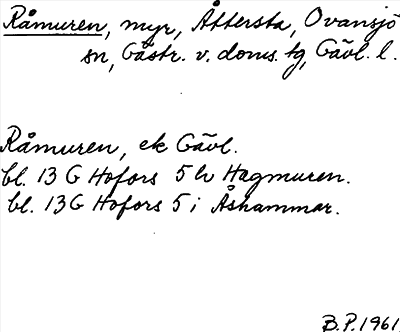 Råmuren, myr, Åttersta, Ovansjö
sn, Gästr. v. doms. tg, Gävl. l.
Råmuren, ek Gävl.
bl. 13 G Hofors 5 h Hagmuren.
bl. 13 G Hofors 5 i Åshammar.
B.P. 1961